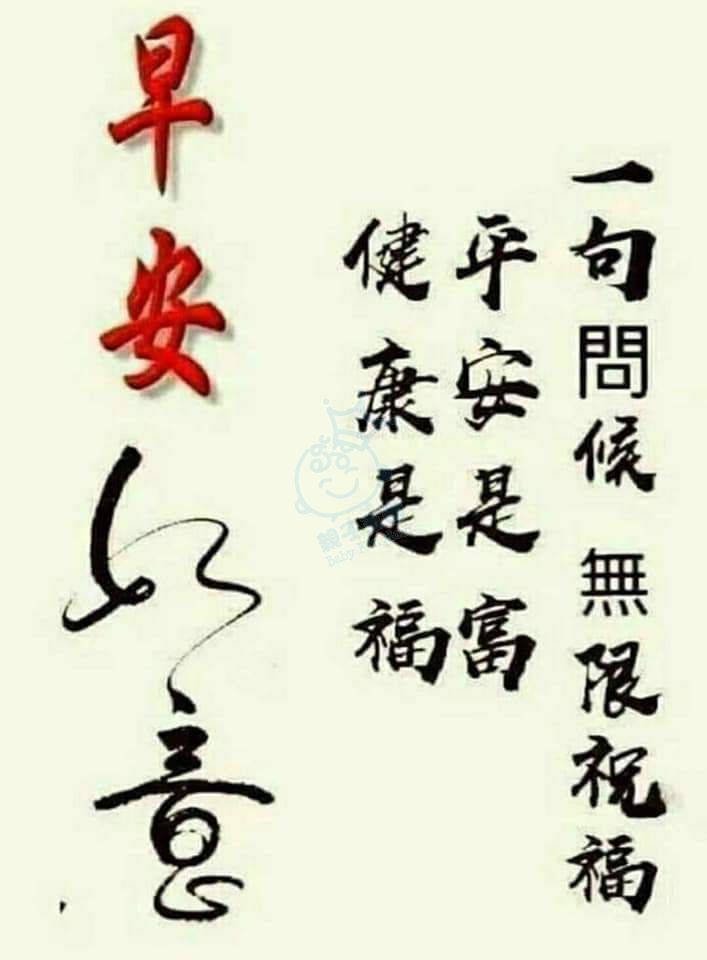 一句問候 無限祝福
平安是富
健康是福
早安
如意
親子
Baby